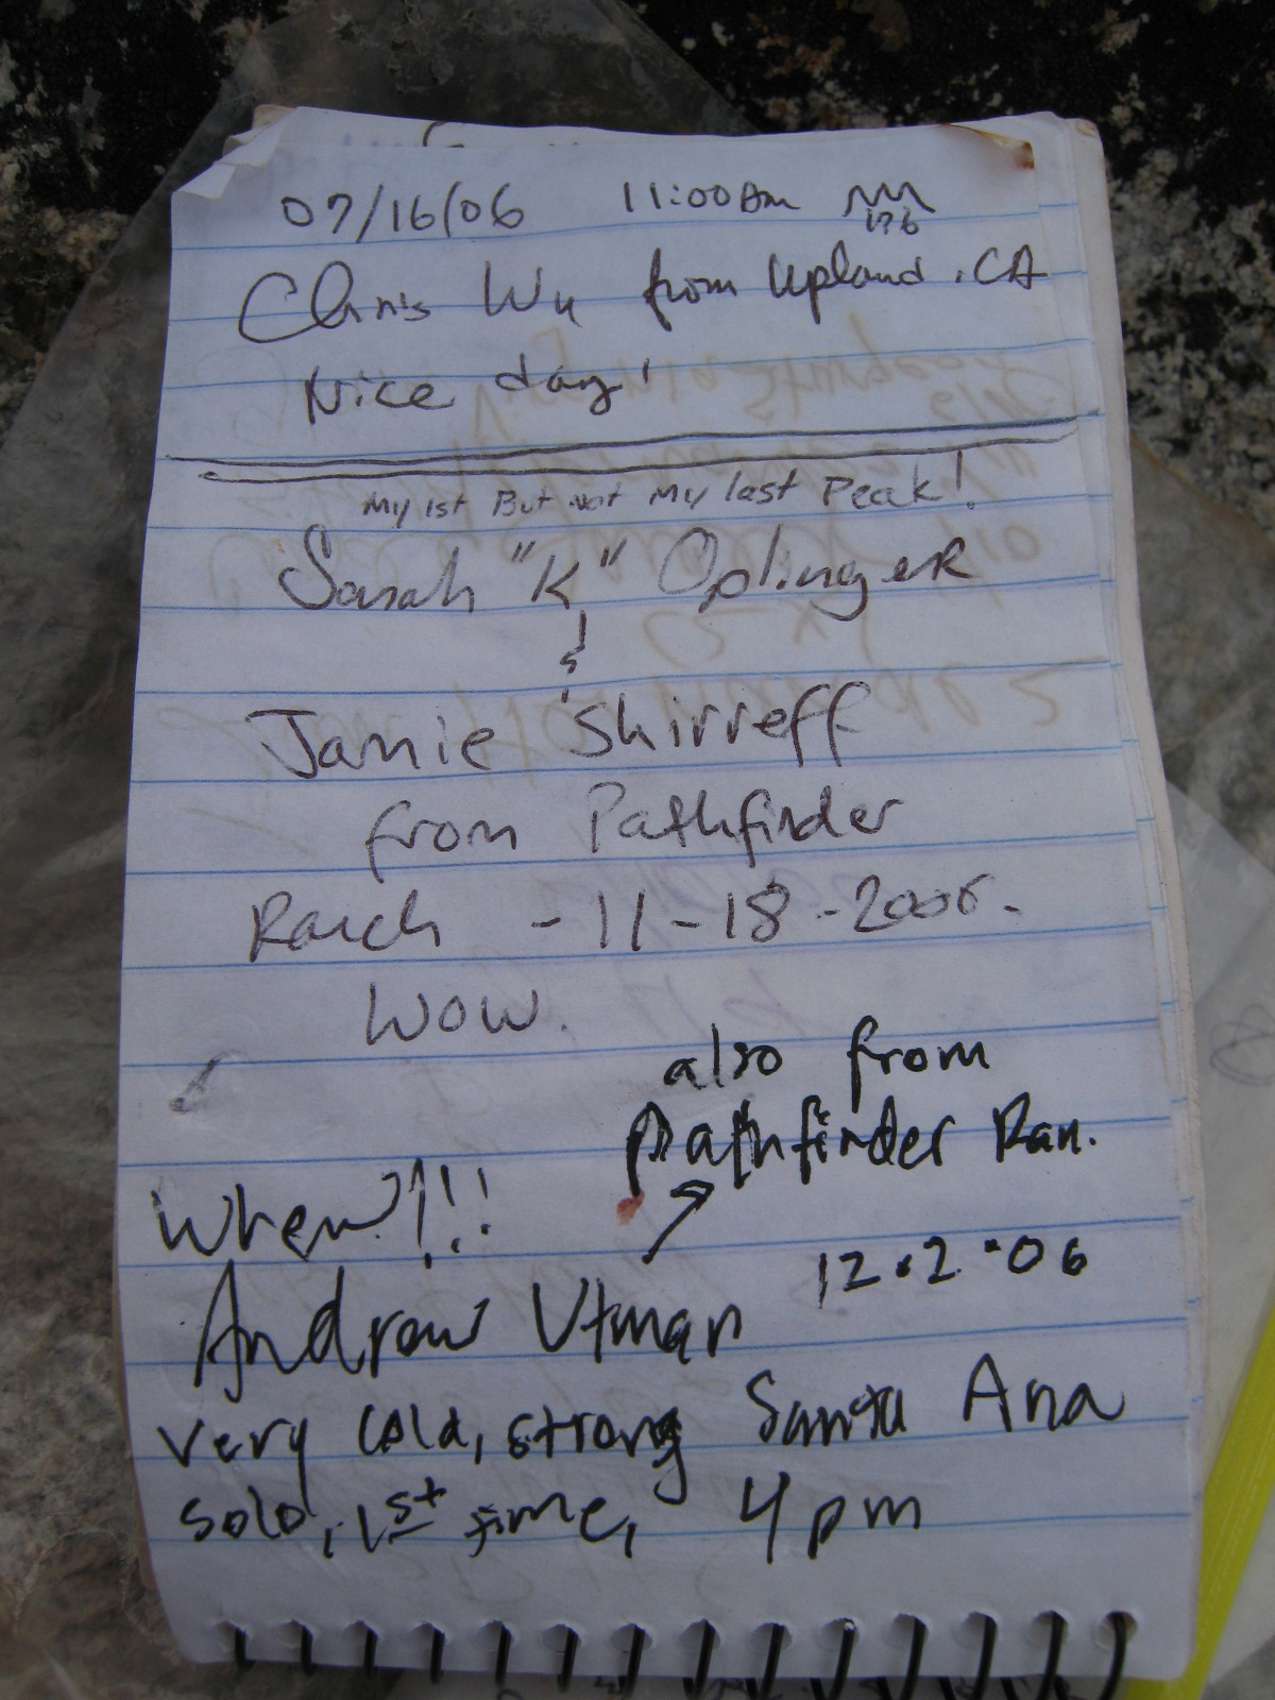 07/16/06 11:00am
176
Chris Wu from Upland, CA
Nice day!
My 1st But not My last Peak!
Sarah "K" Oplinger
&
Jamie Shirreff
from Pathfinder
Ranch - 11-18-2006.
WOW.
also from
Pathfinder Ran.
When?!!!
12.2.06
Andrew Utman
very cold, strong Santa Ana
solo, 1st time, 4pm